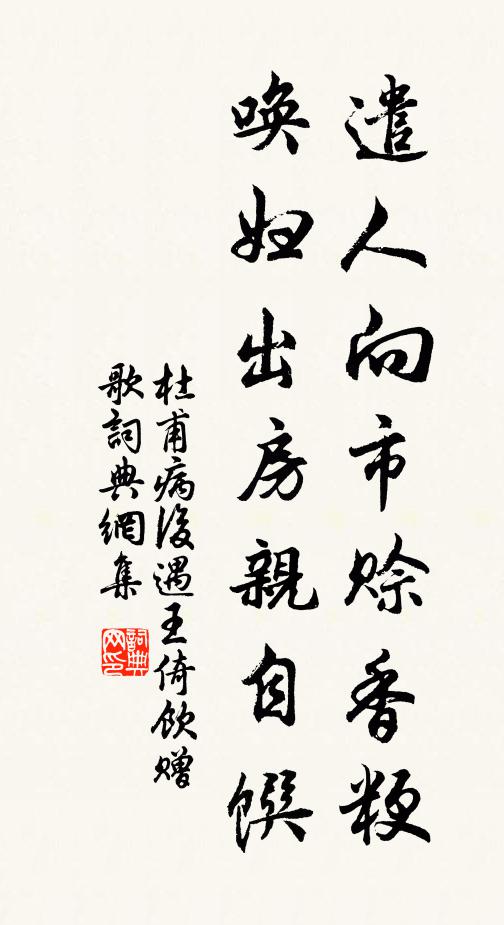 遣人向市赊香粳
唤妇出房親自馔
杜甫病後遇王倚飲赠
歌詞典網集
詞典网印